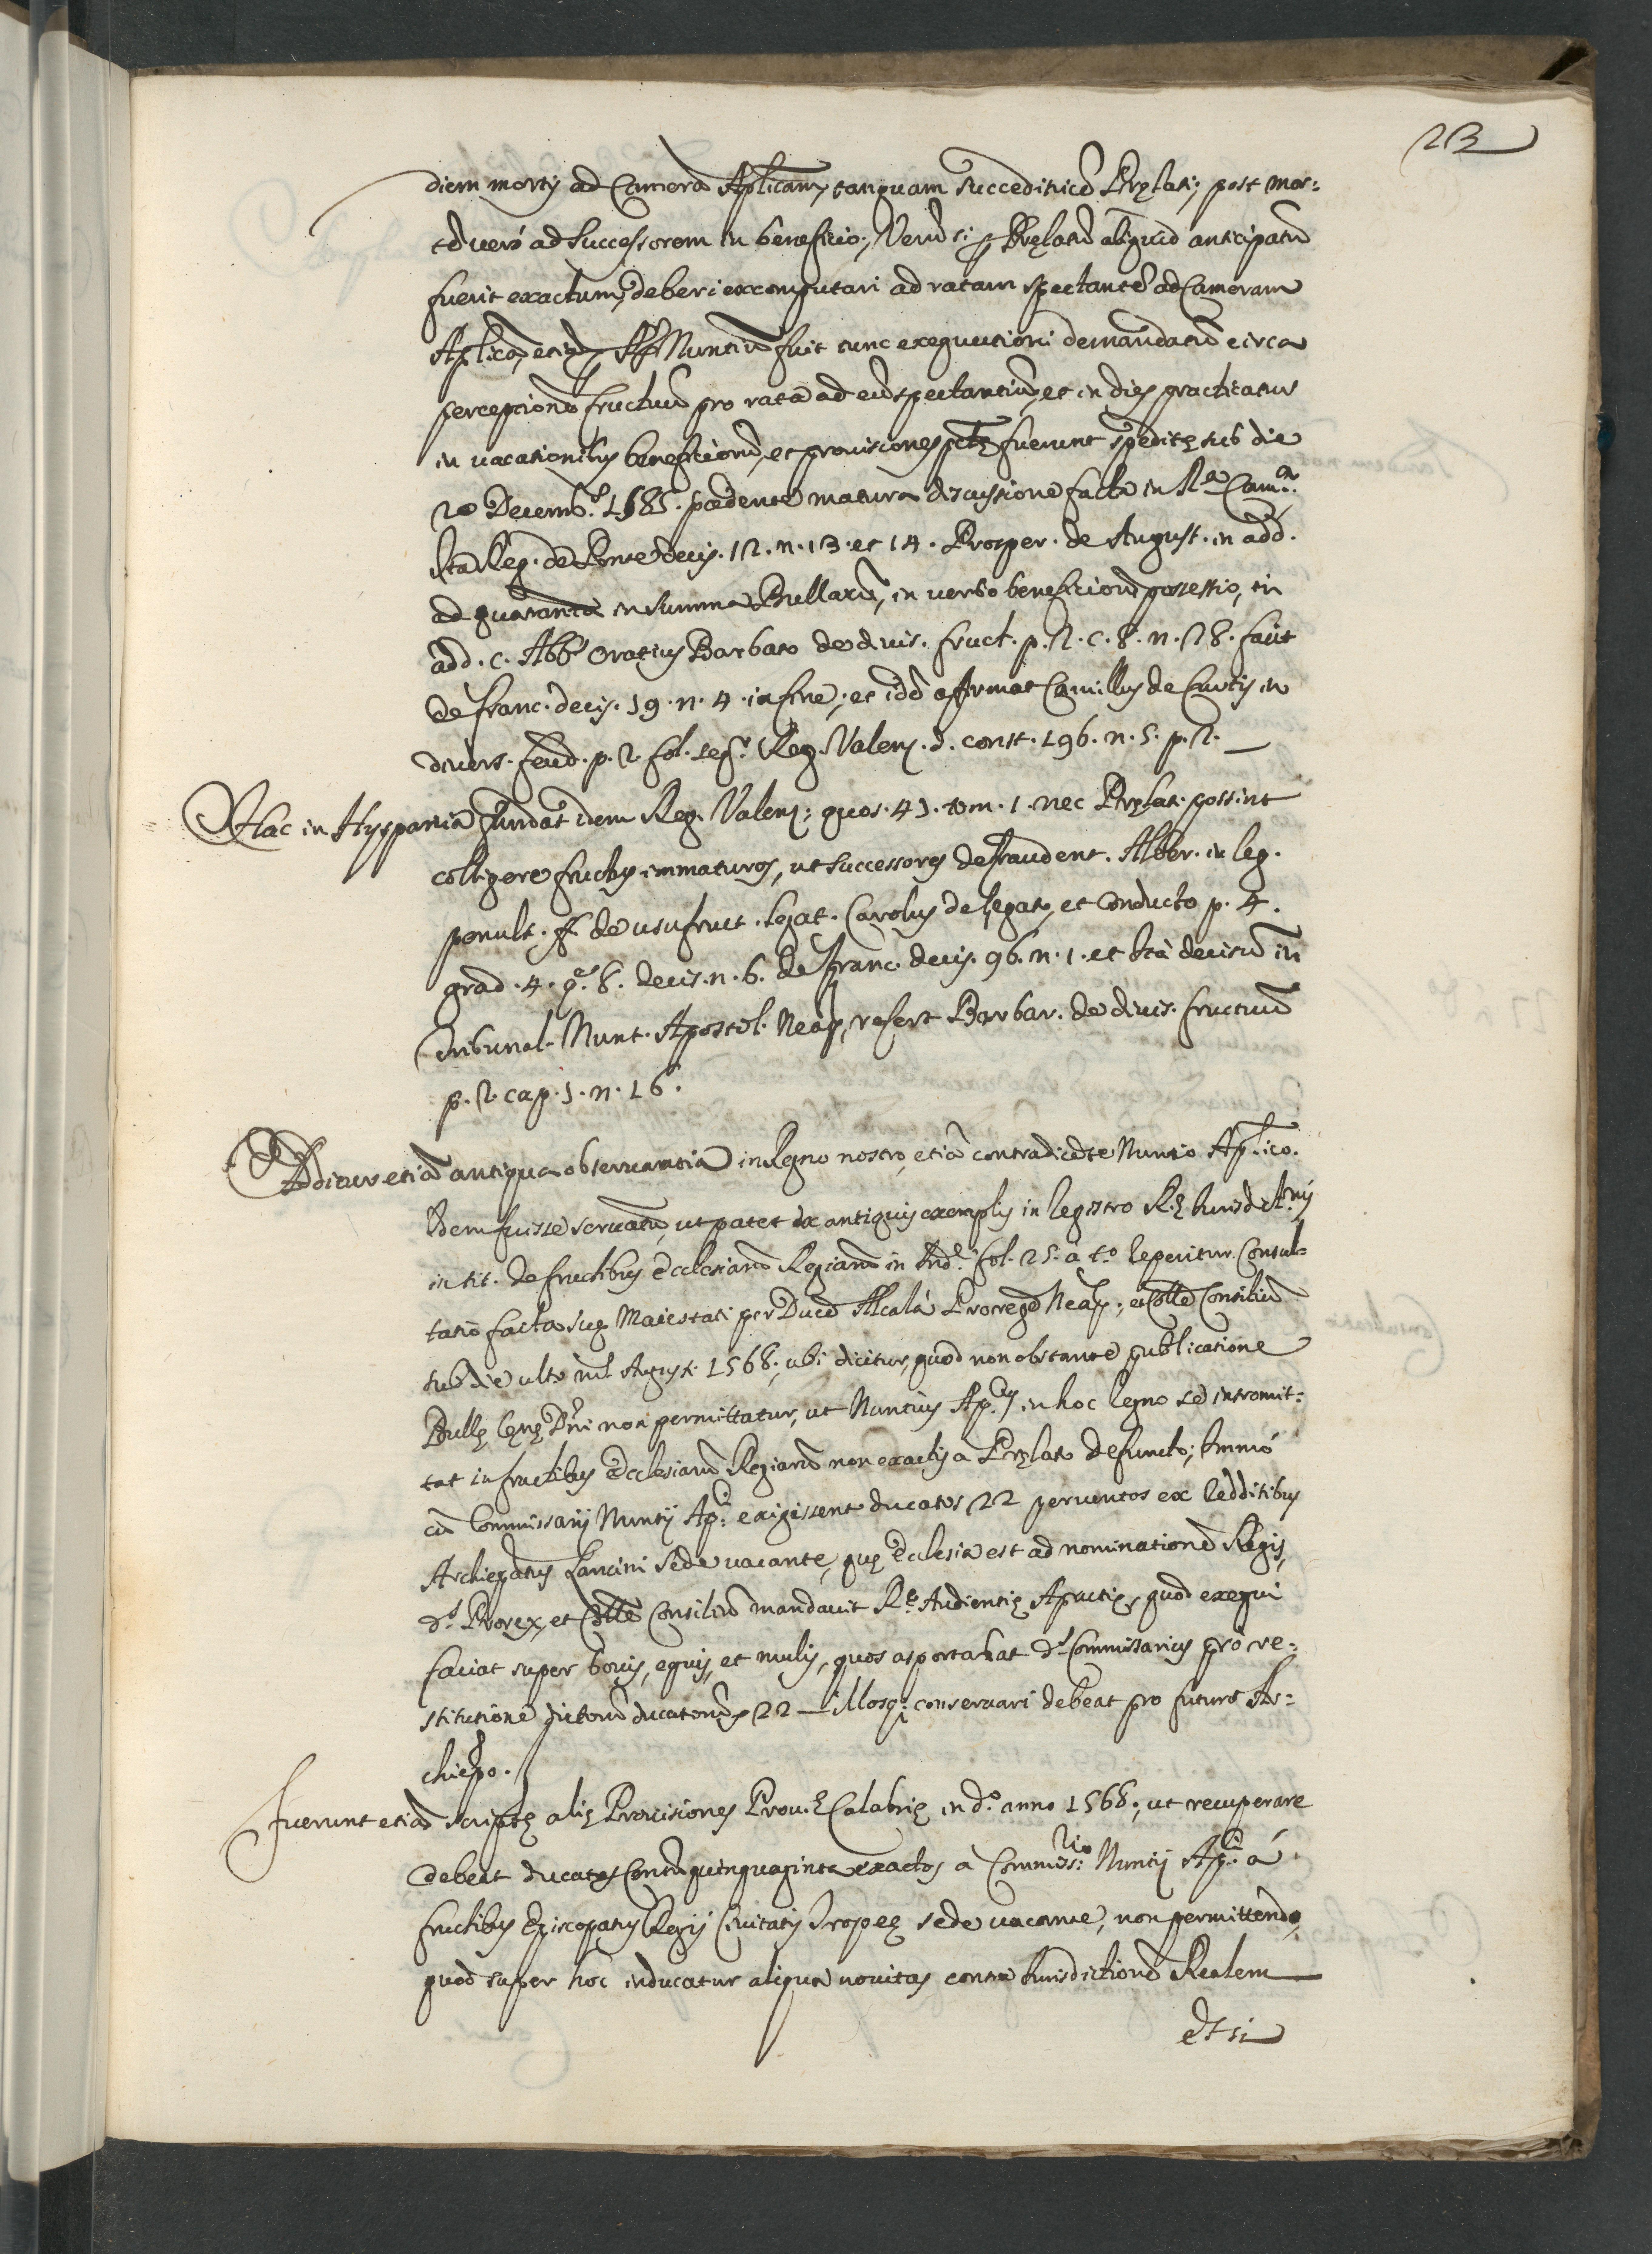 23
diem mortis ad Camerã Aplicam, tanquam succeditricẽ Pręlati, post mor:
tẽ verò ad Successorem in beneficio, Verũ si p Prelatũ aliquid anticipatũ
fuerit exactum, deberi excomputari ad ratam spectantẽ ad Cameram
Aplicã, et p Nuntiũ fuit tunc exequutioni demandatũ circa
perceptionẽ fructuũ pro ratã ad eũ spectantiũ, et in dies practicatur
in vacationibus beneficiorũ, et provisiones fuerunt speditę sub die
20 Decemb. 1685. pcedente matura discussione facta in R.a Cam.a
Ita Reg. de Ponte decis. 12. n. 13. et 14. Prosper. de August. in add.
ad quaranta in summa Bullarũ, in verbo beneficiorũ possessio, in
add. c. Abb. Oratius Barbato de divis. fruct. p. 2. c. 8. n. 28. fact
de franc. decis. 19. n. 4. in fine, et idẽ afirmat Camillus de Curtis in
divers. feud. p. 2. fol. Reg. Valenz. d. const. 196. n. 5. p. 2.
Hac in Hyspania fundat idem Reg. Valenz: quos. 41. tom. 1. nec Pręlati possint
colligere fructus immaturos, ut successores defraudent. Alber. in leg.
penult. ff. de usufruct. legat. Carolus de legato, et conducto p. 4.
grad. 4. q. 8. decis. n. 6. de franc. decis. 96. n. 1. et ità decisũ in
Tribunal. Nunt. Apostol. Neap. refert Barbat. de divis. fructuũ
p. 2. cap. 1. n. 16.
Additur etiã antiqua observantia in Regno nostro, etiã contradicẽte Nuntio Ap.lico.
Idem fuisse servatũ, ut patet ex antiquis exemplis in legistro R.ę Iurisdict.nis
in tit. de fructibus Ecclesiarũ Regiarũ in Ind. fol. 25. à t.o reperitur Consul=
tatio facta Suę Maiestati per Ducẽ Alcalà Proregẽ Neap: et Colle Consiliũ
sub die ultº Augusti 1568, ubi dicitur, quod non obstante publicatione
Bullę Cęnę Dñi non permittatur, ut Nuntius Ap. in hoc Regno se intromit:
tat in fructibus Ecclesiarũ Regiarũ non exactis a Pręlato defuncto, Immò
cũ Commissarij Nuntij Ap: exigissent ducatos 22 perventos ex Redditibus
Archiepatus Lancini Sede vacante, quę Ecclesia est ad nominationẽ Regis,
d.s Prorex, et Colle Consiliũ mandavit R.ę Audientię Aprutij, quod exequi
faciat super bovis, equis, et mulis, quos asportabat d.s Commissarius pro re:
stitutione dictorũ ducatorũ 22 illosq; conservari debeat pro futuro Ar:
chiepo.
Fuerunt etiã scriptę alię Provisiones Prov.ę Calabrię in d.º anno 1568, ut recuperare
debeat ducatos Centũ quinquaginta exactos à Commiss:rio Nuntij Ap: à
fructibus Episcopatus Regij Civitatis Tropeę sede vacante, non permittendo,
quod super hoc inducatur aliqua novitas contra Iurisdictionẽ Realem
Et si